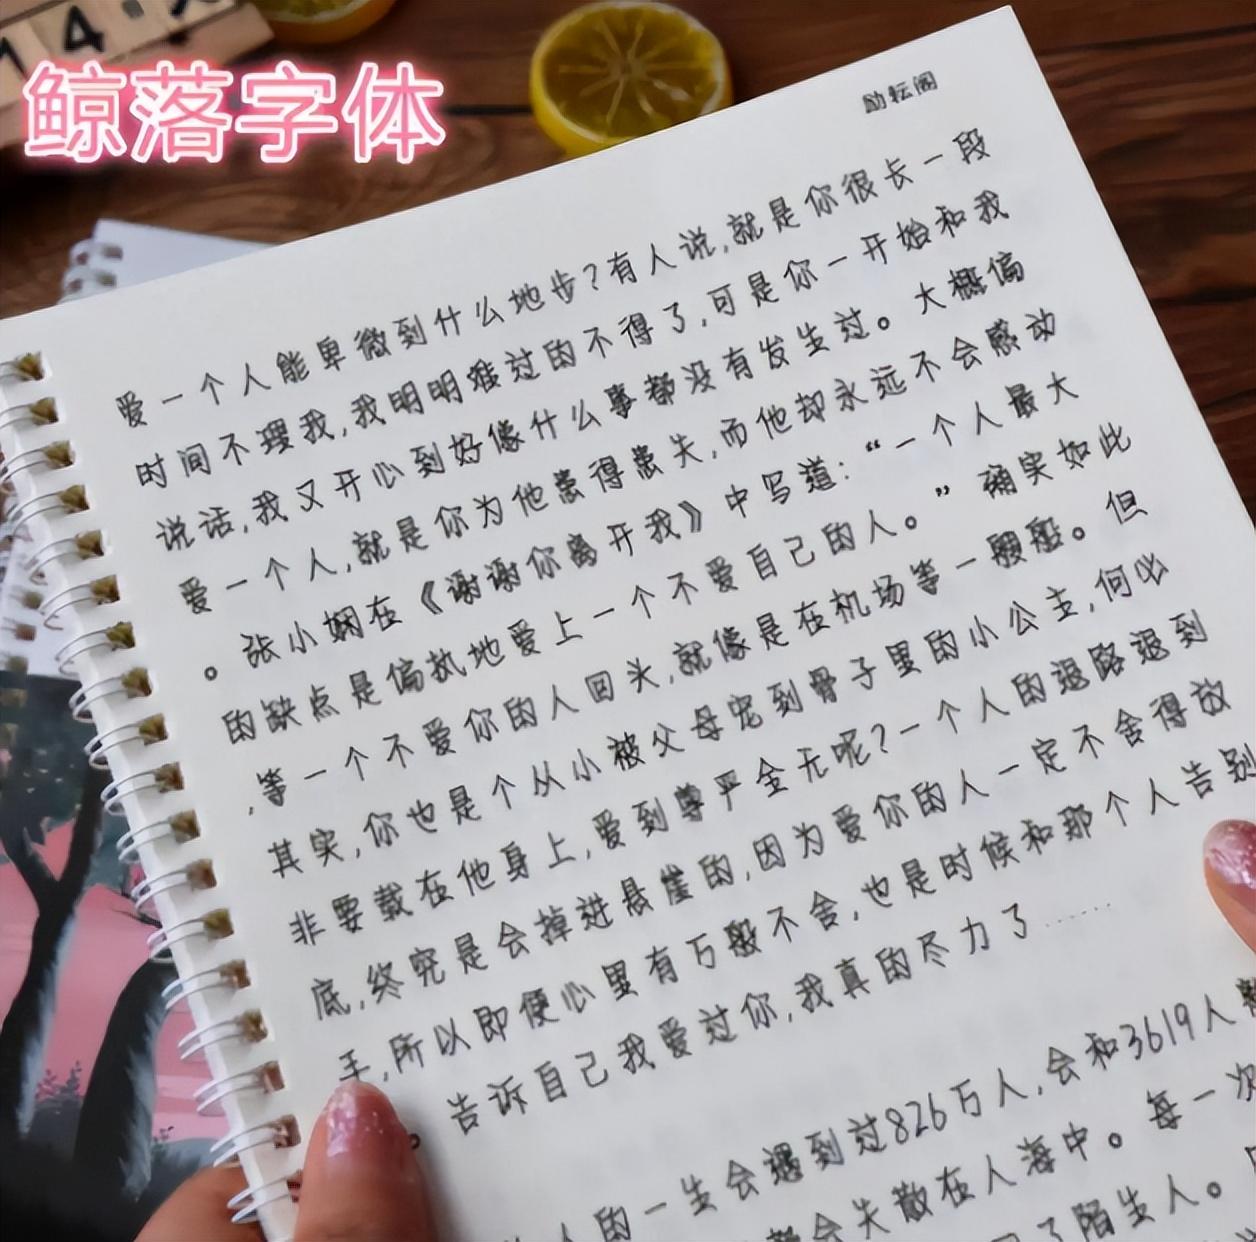 14
鲸落字体
励耘阁
爱一个人能卑微到什么地步?有人说,就是你很长一段
时间不理我,我明明难过的不得了,可是你一开始和我
说话,我又开心到好像什么事都没有发生过。大概偏
爱一个人,就是你为他患得患失,而他却永远不会感动
。张小娴在《谢谢你离开我》中写道:“一个人最大
的缺点是偏执地爱上一个不爱自己的人。”确实如此
,等一个不爱你的人回头,就像是在机场等一艘船。但
其实,你也是个从小被父母宠到骨子里的小公主,何必
非要栽在他身上,爱到尊严全无呢?一个人的退路退到
底,终究是会掉进悬崖的,因为爱你的人一定不舍得放
手,所以即便心里有万般不舍,也是时候和那个人告别
。告诉自己我爱过你,我真的尽力了……
人的一生会遇到过826万人,会和3619人
都会失散在人海中。每一次
了陌生人。